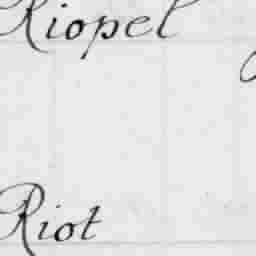 Riopel
Riot